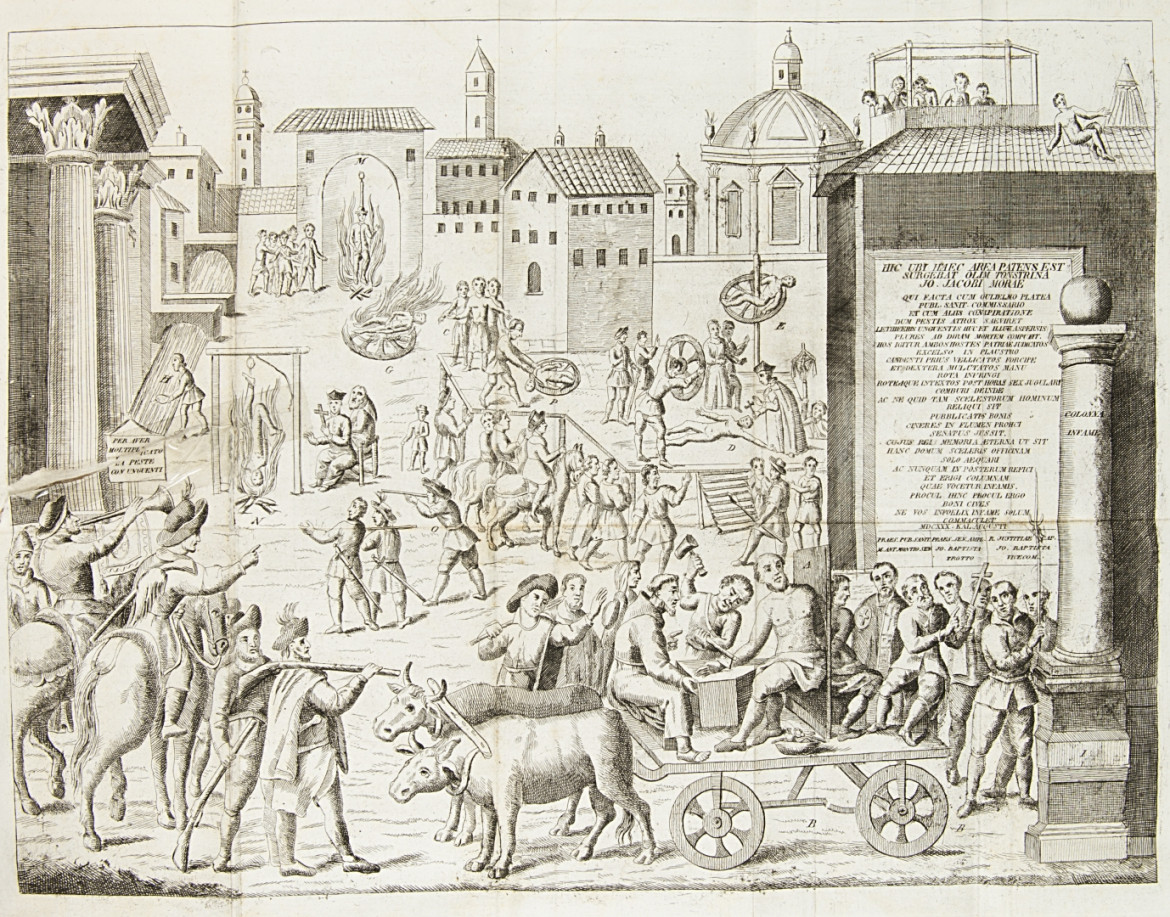 HIC UBI HAEC AREA PATENS EST
SURGEBAT OLIM TONSTRINA
JO. JACOBI MORAE
QUI FACTA CUM GULIELMO PLATEA
PUBL. SANIT. COMMISSARIO
ET CUM ALIIS CONSPIRATIONE
DUM PESTIS ATROX SAEVIRET
LETHIFERIS UNGUENTIS HUC ET ILLUC ASPERSIS
PLURES AD DIRAM MORTEM COMPULIT.
HOS IGITUR AMBOS HOSTES PATRIAE JUDICATOS
EXCELSO IN PLAUSTRO
CANDENTI PRIUS VELLICATOS FORCIPE
ET DEXTERA MULCTATOS MANU
ROTA INFRINGI
ROTAEQUE INTEXTOS POST HORAS SEX JUGULARI
COMBURI DEINDE
AC NE QUID TAM SCELESTORUM HOMINUM
RELIQUI SIT
PUBBLICATIS BONIS
CINERES IN FLUMEN PROIICI
SENATUS JUSSIT.
CUJUS REI MEMORIA AETERNA UT SIT
HANC DOMUM SCELERIS OFFICINAM
SOLO AEQUARI
AC NUNQUAM IN POSTERUM REFICI
ET ERIGI COLUMNAM
QUAE VOCETUR INFAMIS.
PROCUL HINC PROCUL ERGO
BONI CIVES
NE VOS INFELIX INFAME SOLUM
COMMACULET
MDCXXX. KAL. AUGUSTI
JO. BAPTISTA JO. BAPTISTA
TROTTO VICECOM.
COLONNA
INFAME
PER AVER
MOLTIPLICATO
LA PESTE
CON UNGUENTI
M
G
C
E
D
N
A
B
B
I